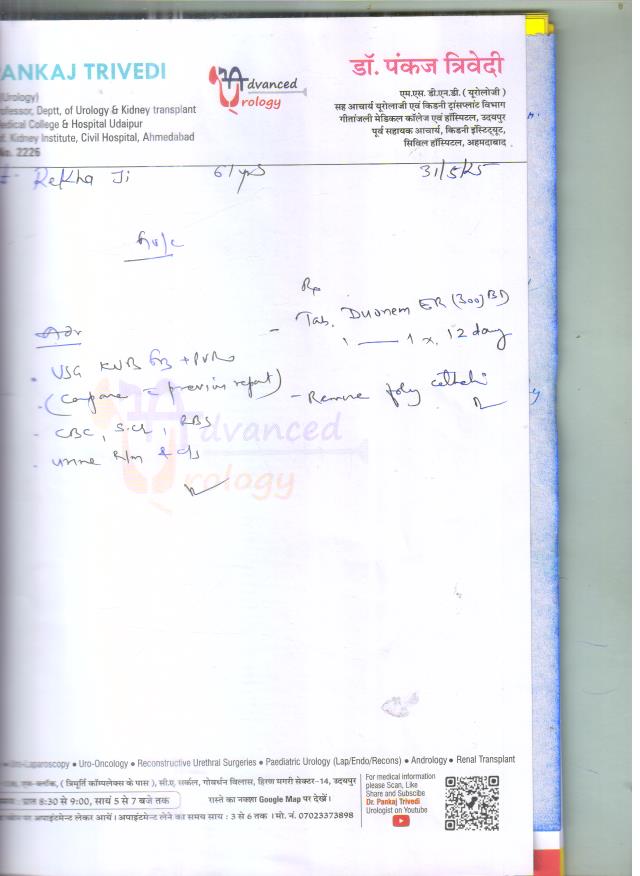 ANKAJ TRIVEDI
Advanced
Urology
डॉ. पंकज त्रिवेदी
Urology)
ofessor, Deptt. of Urology & Kidney transplant
edical College & Hospital Udaipur
f. Kidney Institute, Civil Hospital, Ahmedabad
No. 2226
एम.एस. डी.एन.बी. ( यूरोलोजी )
सह आचार्य यूरोलाजी एवं किडनी ट्रांसप्लांट विभाग
गीतांजली मेडिकल कॉलेज एवं हॉस्पिटल, उदयपुर
पूर्व सहायक आचार्य, किडनी इंस्टिट्यूट,
सिविल हॉस्पिटल, अहमदाबाद
Rekha Ji 61 yrs 31/5/25
Rp
- Tab. Duonem ER (300) BD
1 — 1 x 12 day
Adv
- USG KUB + PVR
- (Compare = previous report)
- Remove foly
- CBC, S.Cr, RBS
- urine R/m & c/s
Advanced
Urology
Uro-Laparoscopy • Uro-Oncology • Reconstructive Urethral Surgeries • Paediatric Urology (Lap/Endo/Recons) • Andrology • Renal Transplant
( त्रिमूर्ति कॉम्पलेक्स के पास ), सी.ए. सर्कल, गोवर्धन विलास, हिरण मगरी सेक्टर-14, उदयपुर
प्रात 8:30 से 9:00, सायं 5 से 7 बजे तक रास्ते का नक्शा Google Map पर देखें।
अपाइंटमेन्ट लेकर आयें। अपाइंटमेन्ट लेने का समय सायं : 3 से 6 तक । मो. नं. 07023373898
For medical information
please Scan, Like
Share and Subscibe
Dr. Pankaj Trivedi
Urologist on Youtube